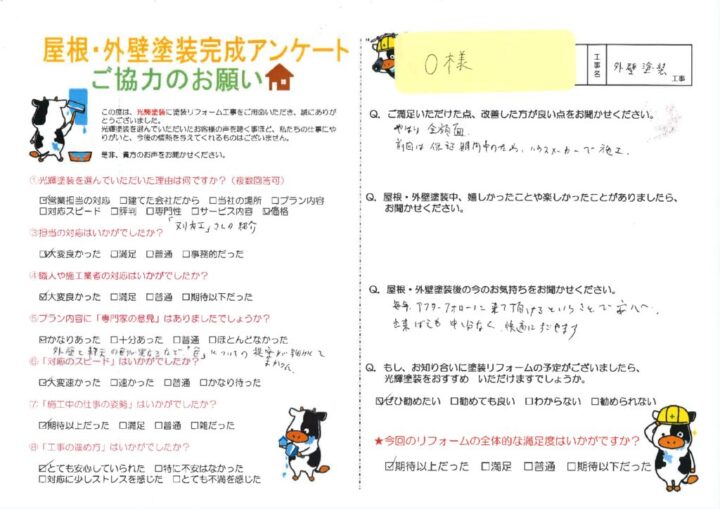 屋根・外壁塗装完成アンケート
ご協力のお願い
この度は、光輝塗装に塗装リフォーム工事をご用命いただき、誠にありが
とうございました。
光輝塗装を選んでいただいたお客様の声を聴く事ほど、私たちの仕事にや
りがいと、今後の情熱を与えてくれるものはございません。
是非、貴方のお声をお聞かせください。
①光輝塗装を選んでいただいた理由は何ですか?(複数回答可)
☑営業担当の対応 □建てた会社だから □当社の場所 □プラン内容
□対応スピード □評判 □専門性 □サービス内容 ☑価格
さんの紹介
③担当の対応はいかがでしたか?
☑大変良かった □満足 □普通 □事務的だった
④職人や施工業者の対応はいかがでしたか?
☑大変良かった □満足 □普通 □期待以下だった
⑤プラン内容に「専門家の意見」はありましたでしょうか?
☑かなりあった □十分あった □普通 □ほとんどなかった
外壁と軒天の
「色」についての提案が細かくて
⑥「対応のスピード」はいかがでしたか?
☑大変速かった □速かった □普通 □かなり待った
⑦「施工中の仕事の姿勢」はいかがでしたか?
☑期待以上だった □満足 □普通 □雑だった
⑧「工事の進め方」はいかがでしたか?
☑とても安心していられた □特に不安はなかった
□対応に少しストレスを感じた □とても不満を感じた
O様
工事名
外壁塗装
工事
Q. ご満足いただけた点、改善した方が良い点をお聞かせください。
やはり 金額面
前回は保証期間中のため、ハウスメーカーで施工.
Q. 屋根・外壁塗装中、嬉しかったことや楽しかったことがありましたら、
お聞かせください。
Q. 屋根・外壁塗装後の今のお気持ちをお聞かせください。
毎年 アフターフォローに来て頂けるということで安心.
出来ばえも 申し分なく、快適にすごせます
Q. もし、お知り合いに塗装リフォームの予定がございましたら、
光輝塗装をおすすめ いただけますでしょうか。
☑ぜひ勧めたい □勧めても良い □わからない □勧められない
★今回のリフォームの全体的な満足度はいかがですか?
☑期待以上だった □満足 □普通 □期待以下だった